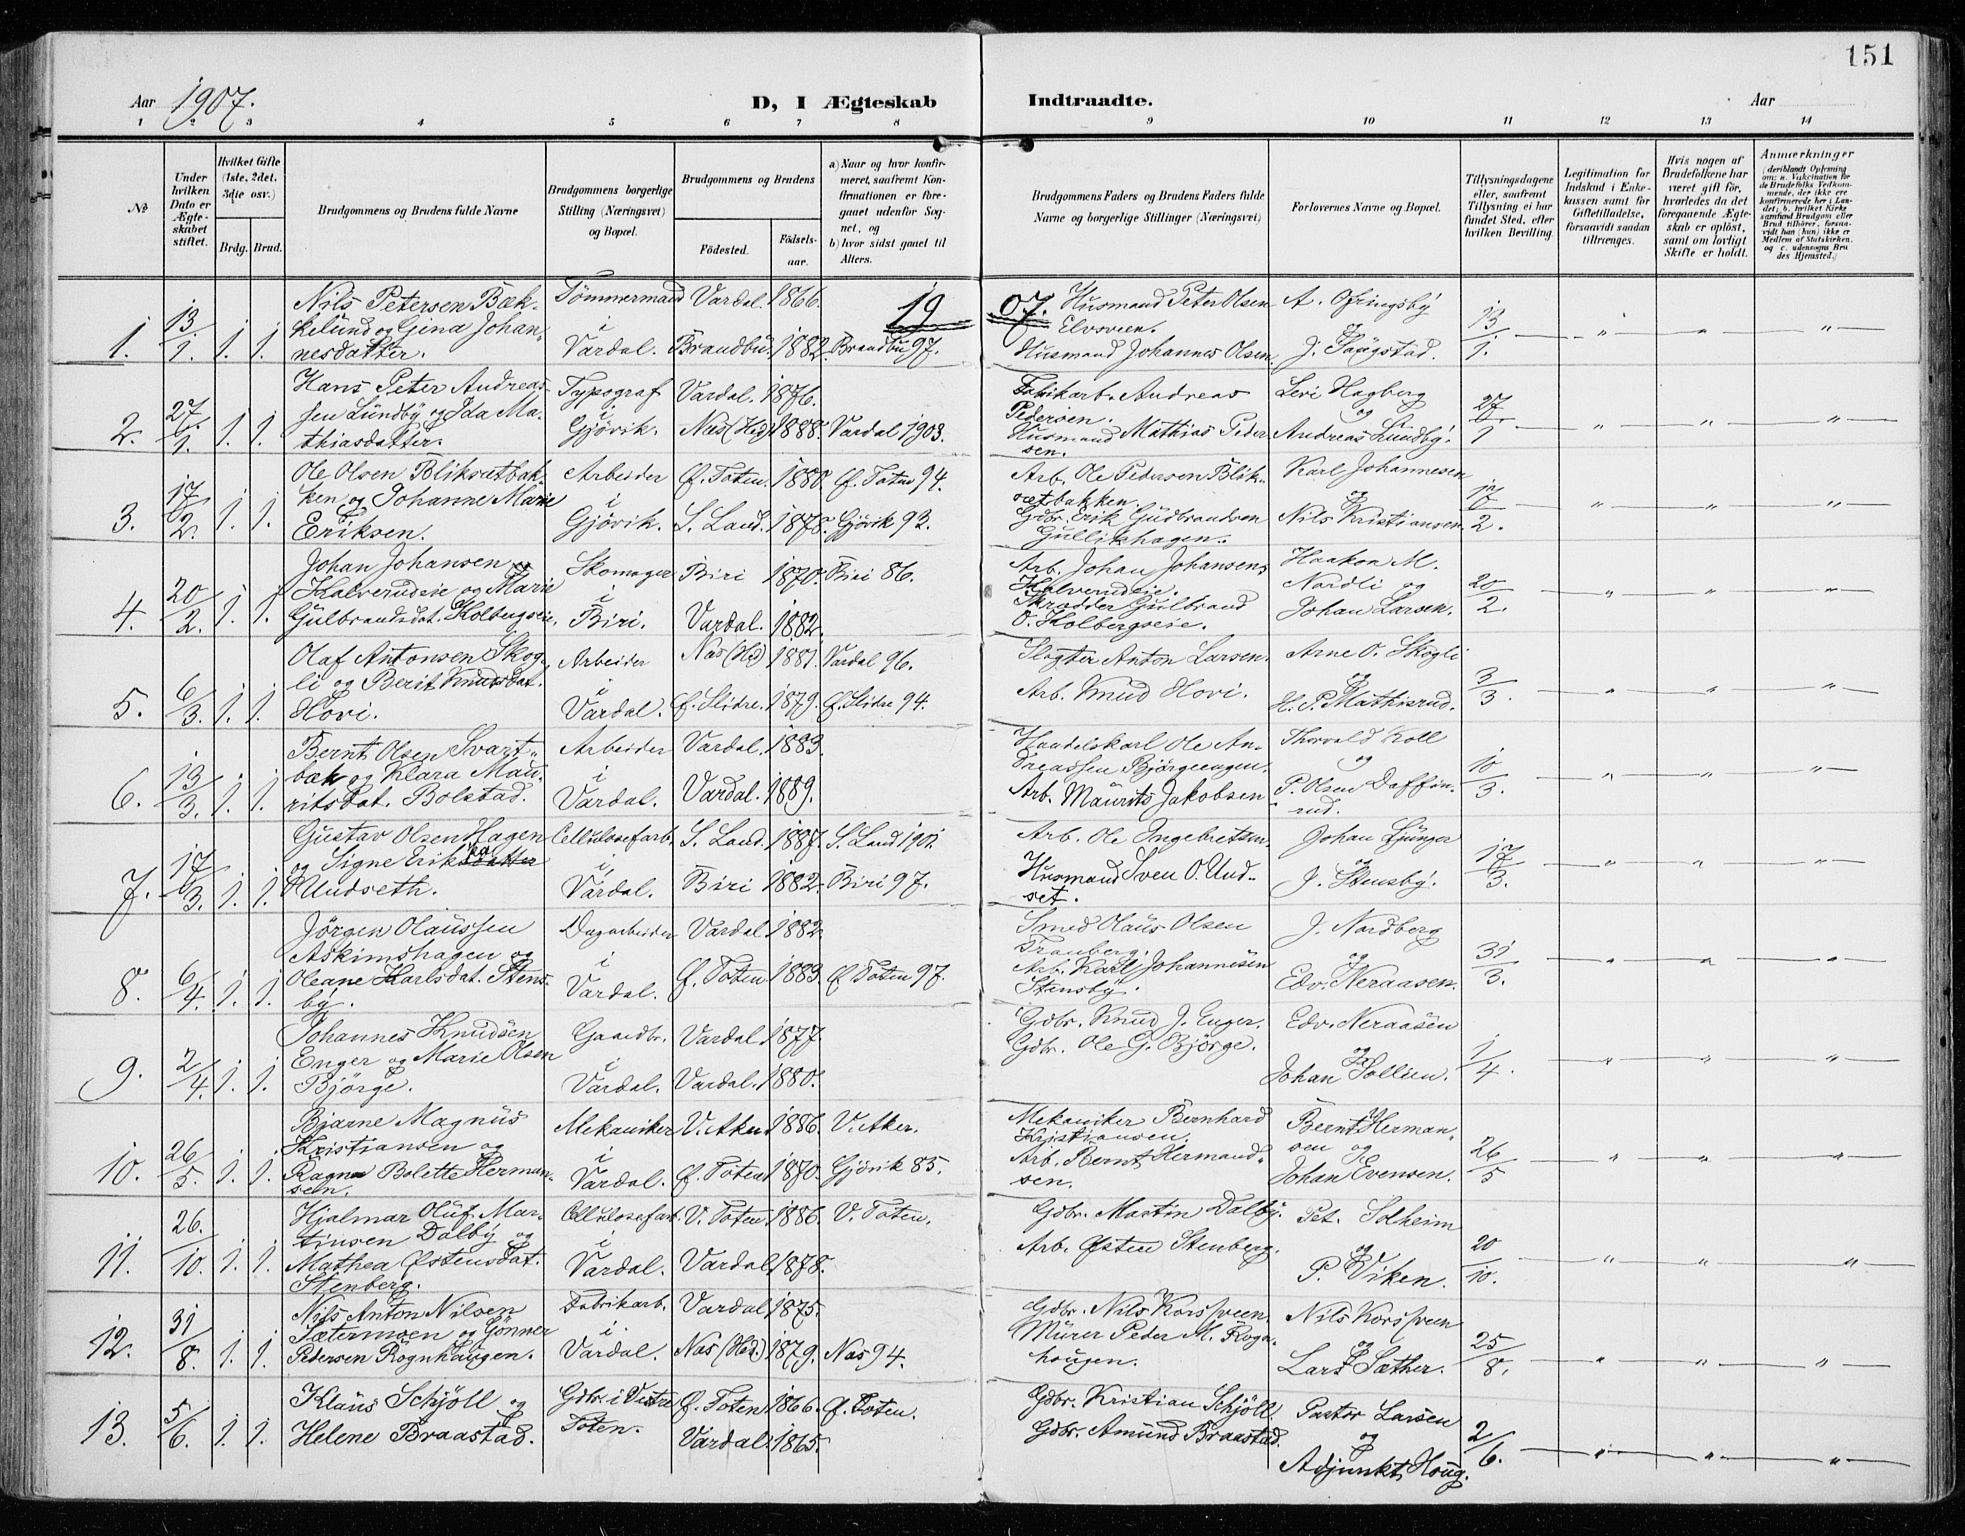 151
Aar 1907.
D, I Ægteskab Indtraadte.
Aar
1 2 3 4 5 6 7 8 9 10 11 12 13 14
No
Under hvilken Dato er Ægteskabet stiftet.
Hvilket Gifte (1ste, 2det, 3die osv.)
Brdg. Brud.
Brudgommens og Brudens fulde Navne
Brudgommens borgerlige Stilling (Næringsvei) og Bopæl.
Brudgommens og Brudens
Fødested. Fødselsaar.
a) Naar og hvor konfirmeret, saafremt Konfirmationen er foregaaet udenfor Sognet, og
b) hvor sidst gaaet til Alters.
Brudgommens Faders og Brudens Faders fulde Navne og borgerlige Stillinger (Næringsvei)
Forlovernes Navne og Bopæl.
Tillysningsdagene eller, saafremt Tillysning ei har fundet Sted, efter hvilken Bevilling.
Legitimation for Indskud i Enkekassen samt for Giftetilladelse, forsaavidt saadan tiltrænges.
Hvis nogen af Brudefolkene har været gift før, hvorledes da det foregaaende Ægteskab er opløst, samt om lovligt Skifte er holdt.
Anmærkninger
1907.
1. 13/1. 1. 1. Nils Petersen Bækkelund og Gina Johannesdatter. Tømmermand i Vardal. Vardal 1866. Brandbu 1882. Brandbu 97. Husmand Peter Olsen Elvsveen. Husmand Johannes Olsen. A. Ofringsby og J. Saugstad. 13/1.
2. 27/1. 1. 1. Hans Peter Andreassen Lundby og Ida Mathiasdatter. Typograf i Gjövik. Vardal. 1876. Næs (Hed) 1888. Vardal 1903. Fabrikarb. Andreas Pedersen. Husmand Mathias Pedersen. Levi Hagberg og Andreas Lundby. 27/1
3. 17/2. 1. 1. Ole Olsen Bliksætbakken og Johanne Marie Eriksen. Arbeider i Gjövik. Ø. Toten. 1880. Ø. Toten 94. S. Land. 1878. Gjövik 93. Arb. Ole Pedersen Bliksætbakken. Gdbr. Erik Gudbrandsen Gullikhagen. Karl Johannesen og Nils Kristiansen. 17/2.
4. 20/2. 1. 1. Johan Johansen Kalverudeie og Marie Gulbrandsdat. Kolbergseie. Skomager i Biri. Biri 1870. Biri 86. Vardal. 1882. Arb. Johan Johansen, Kalverudeie. Skrædder Gulbrand O. Kolbergseie. Haakon M. Nordli og Johan Larsen. 20/2.
5. 6/3. 1. 1. Olaf Antonsen Skogli og Berit Knudsdat. Hovi. Arbeider i Vardal. Næs (Hed) 1881. Vardal 96. Ø. Slidre. 1879. Ø. Slidre 94. Slagter Anton Larsen. Arb. Knud Hovi. Arne O. Skogli og H. P. Mathisrud. 3/3.
6. 13/3. 1. 1. Bernt Olsen Svartbæk og Klara Mauritsdat. Bolstad. Arbeider i Vardal. Vardal. 1883. Vardal. 1889. Handelskarl Ole Andreassen Björgeengen. Arb. Maurits Jakobsen Thorvald Koll og P. Olsen Daffinrud. 10/3.
7. 17/3. 1. 1. Gustav Olsen Hagen og Signe Undseth. Cellulosefarb. i Vardal. S. Land. 1887. S. Land 1901. Biri 1882. Biri 97. Arb. Ole Ingebretsen. Husmand Sven O. Undset. Johan Ljunger og J. Stensby. 17/3.
8. 6/4. 1. 1. Jörgen Olaussen Askimshagen og Oleane Karlsdat. Stensby. Dagarbeider i Vardal. Vardal 1882. Ø. Toten 1883. Ø. Toten 97. Smed Olaus Olsen Tranberg. Arb. Karl Johannesen Stensby. J. Nordberg og Edv. Neraasen. 31/3.
9. 2/4. 1. 1. Johannes Knudsen Enger og Marie Olsen Björge. Gaardbr. i Vardal. Vardal 1877. Vardal. 1880. Gdbr. Knud J. Enger. Gdbr. Ole G. Björge. Edv. Neraasen og Johan Sollien. 1/4.
10. 26/5. 1. 1. Bjarne Magnus Kristiansen og Ragna Bolette Hermansen. Mekaniker i Vardal. V. Aker 1886. V. Aker. Ø. Toten 1870. Gjövik 85. Mekaniker Bernhard Kristiansen. Arb. Bernt Hermandsen. Bernt Hermansen og Johan Evensen. 26/5
11. 26./10. 1. 1. Hjalmar Oluf Martinsen Dalby og Mathea Østensdat. Stenberg. Cellulosefarb. i Vardal. V. Toten. 1886. V. Toten. Vardal 1878. Gdbr. Martin Dalby. Arb. Østen Stenberg. Pet. Solheim og P. Viken. 20/10.
12. 31/8. 1. 1. Nils Anton Nilsen Sætermoen og Gönner Pedersen Rognhaugen. Fabrikarb. i Vardal. Vardal 1875. Næs (Hed.) 1879. Næs 94. Gdbr. Nils Korssveen. Murer Peder M. Rognhougen. Nils Korssveen og Lars Sæther. 25/8.
13. 5/6. 1. 1. Klaus Schjöll og Helene Braastad. Gdbr. i Vestre Toten. Ø. Toten 1866. Ø. Toten. Vardal 1865. Gdbr. Kristian Schjöll. Gdbr. Amund Braastad. Pastor Larsen og Adjunkt Houg. 2/6.